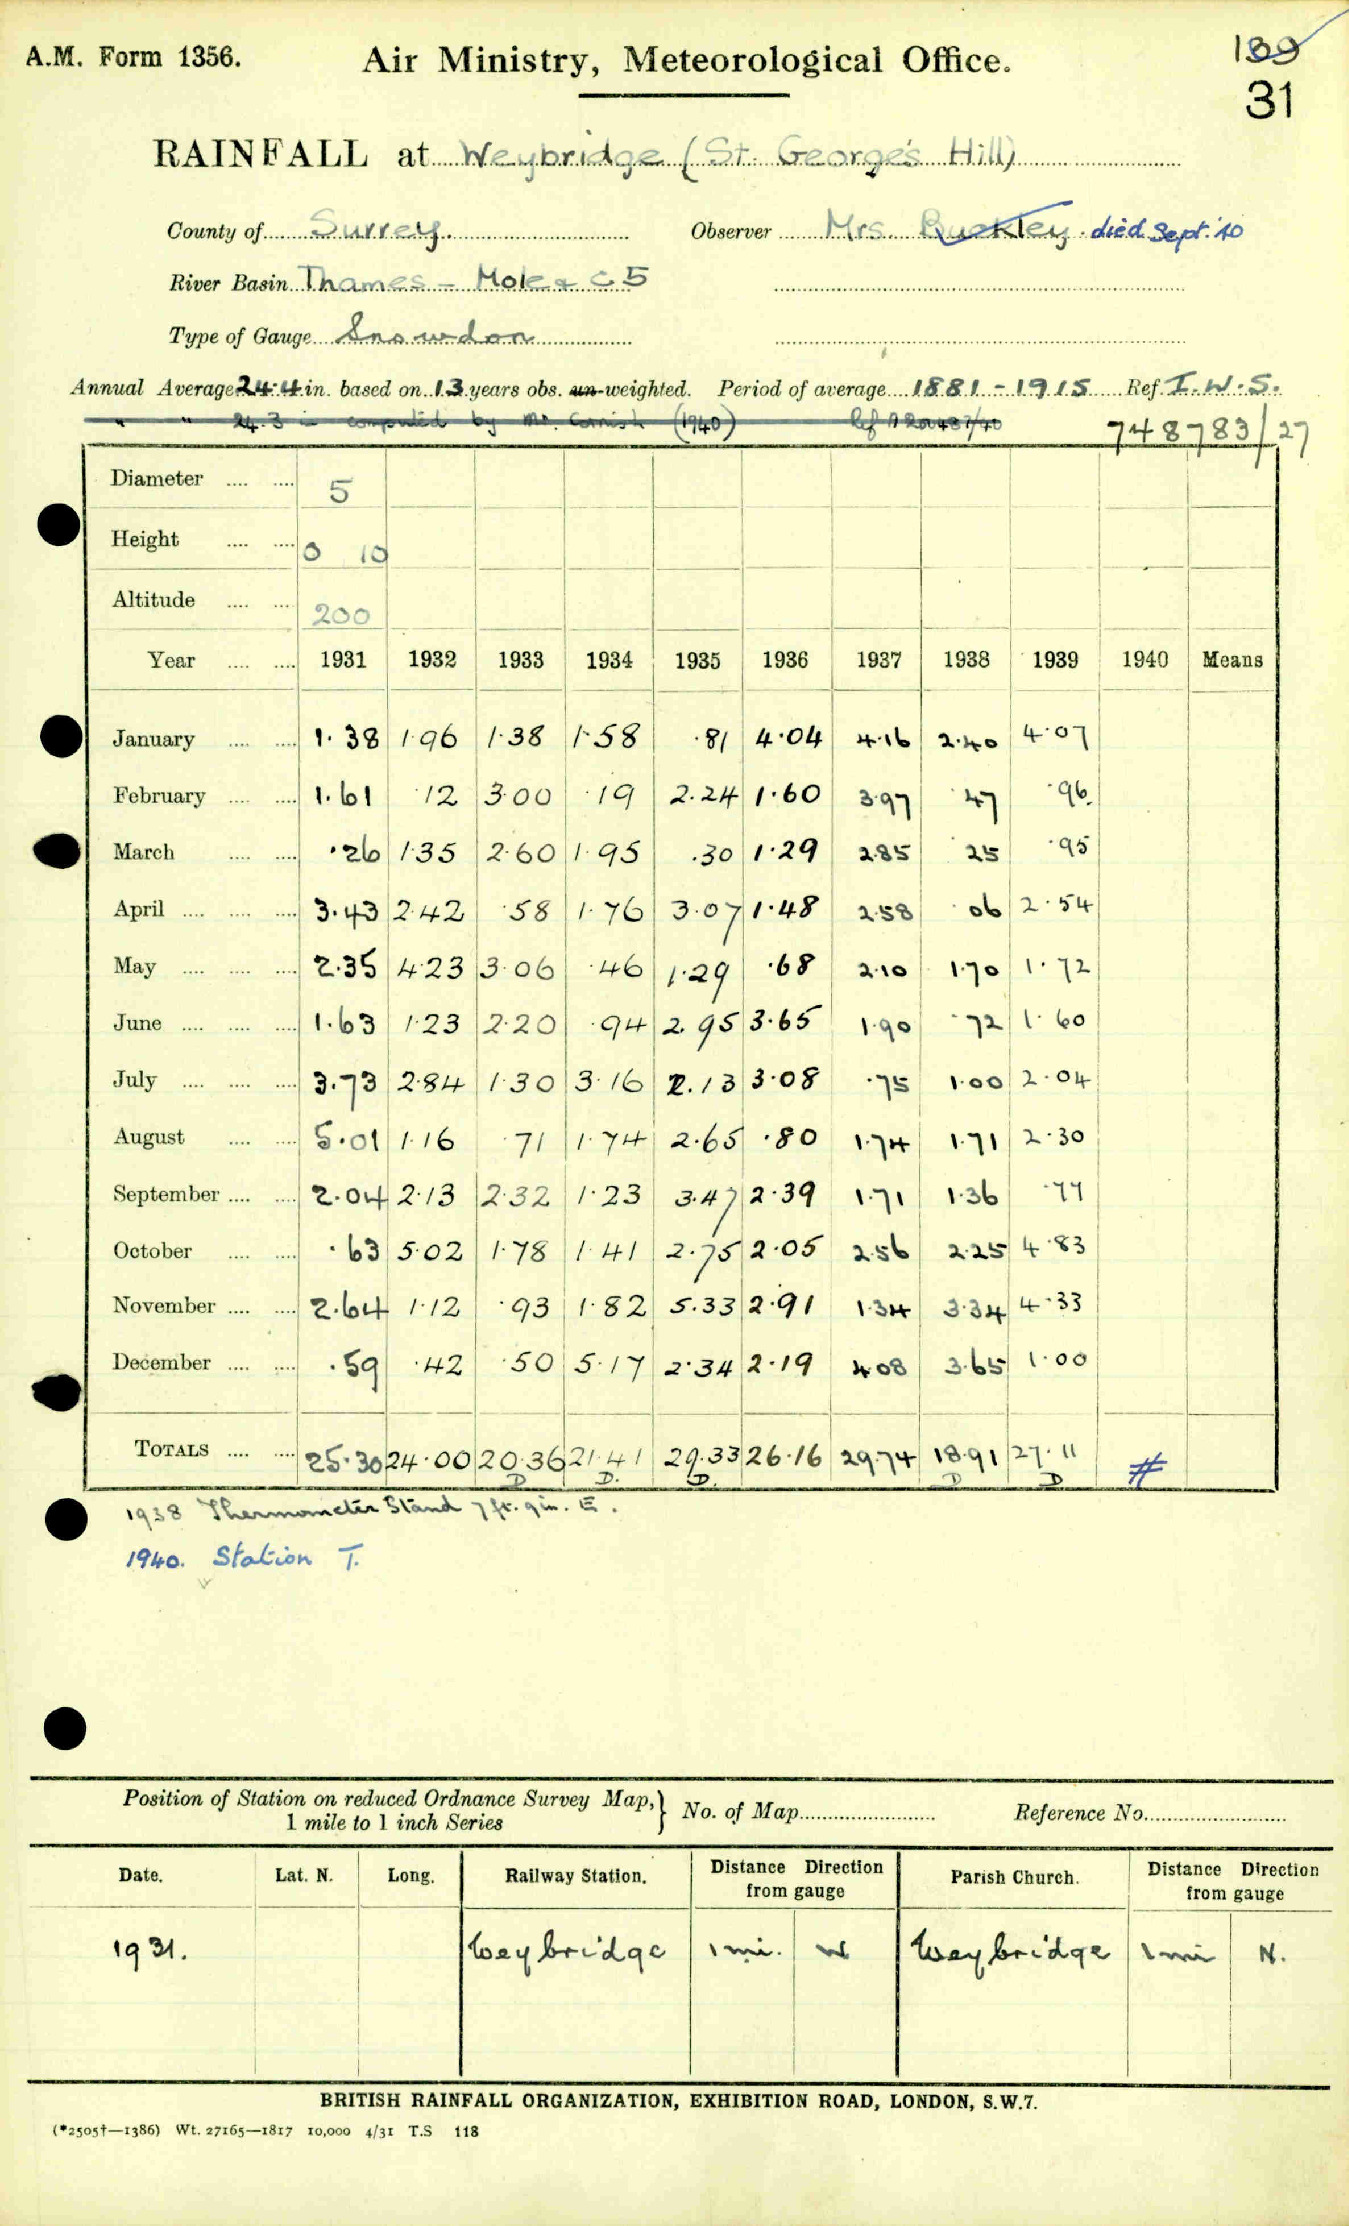 A.M. Form 1356. Air Ministry, Meteorological Office. 139
31
RAINFALL at Weybridge (St. George's Hill)
County of Surrey. Observer Mrs. Buckley. died Sept. '40
River Basin Thames - Mole & C5
Type of Gauge Snowdon
Annual Average 24.4 in. based on 13 years obs. un-weighted. Period of average 1881 - 1915 Ref. I.W.S.
" " 24.3 in computed by Mr. Cornish (1940)
748783/27
Diameter .... .... 5
Height .... .... 0 10
Altitude .... .... 200
Year .... .... 1931 1932 1933 1934 1935 1936 1937 1938 1939 1940 Means
January .... .... 1.38 1.96 1.38 1.58 .81 4.04 4.16 2.40 4.07
February .... .... 1.61 .12 3.00 .19 2.24 1.60 3.97 .47 .96
March .... .... .26 1.35 2.60 1.95 .30 1.29 2.85 .25 .95
April .... .... .... 3.43 2.42 .58 1.76 3.07 1.48 2.58 .06 2.54
May .... .... .... 2.35 4.23 3.06 .46 1.29 .68 2.10 1.70 1.72
June .... .... .... 1.63 1.23 2.20 .94 2.95 3.65 1.90 .72 1.60
July .... .... .... 3.73 2.84 1.30 3.16 2.13 3.08 .75 1.00 2.04
August .... .... 5.01 1.16 .71 1.74 2.65 .80 1.74 1.71 2.30
September .... .... 2.04 2.13 2.32 1.23 3.47 2.39 1.71 1.36 .77
October .... .... .63 5.02 1.78 1.41 2.75 2.05 2.56 2.25 4.83
November .... .... 2.64 1.12 .93 1.82 5.33 2.91 1.34 3.34 4.33
December .... .... .59 .42 .50 5.17 2.34 2.19 4.08 3.65 1.00
TOTALS .... .... 25.30 24.00 20.36 21.41 29.33 26.16 29.74 18.91 27.11 #
D D. D. D D
1938 Thermometer Stand 7 ft. 9 in. E.
1940. Station T.
Position of Station on reduced Ordnance Survey Map, } No. of Map Reference No.
1 mile to 1 inch Series
Date. Lat. N. Long. Railway Station. Distance Direction from gauge Parish Church. Distance Direction from gauge
1931. Weybridge 1 mi. W Weybridge 1 mi N.
BRITISH RAINFALL ORGANIZATION, EXHIBITION ROAD, LONDON, S.W.7.
(*2505†—1386) Wt. 27165—1817 10,000 4/31 T.S 118